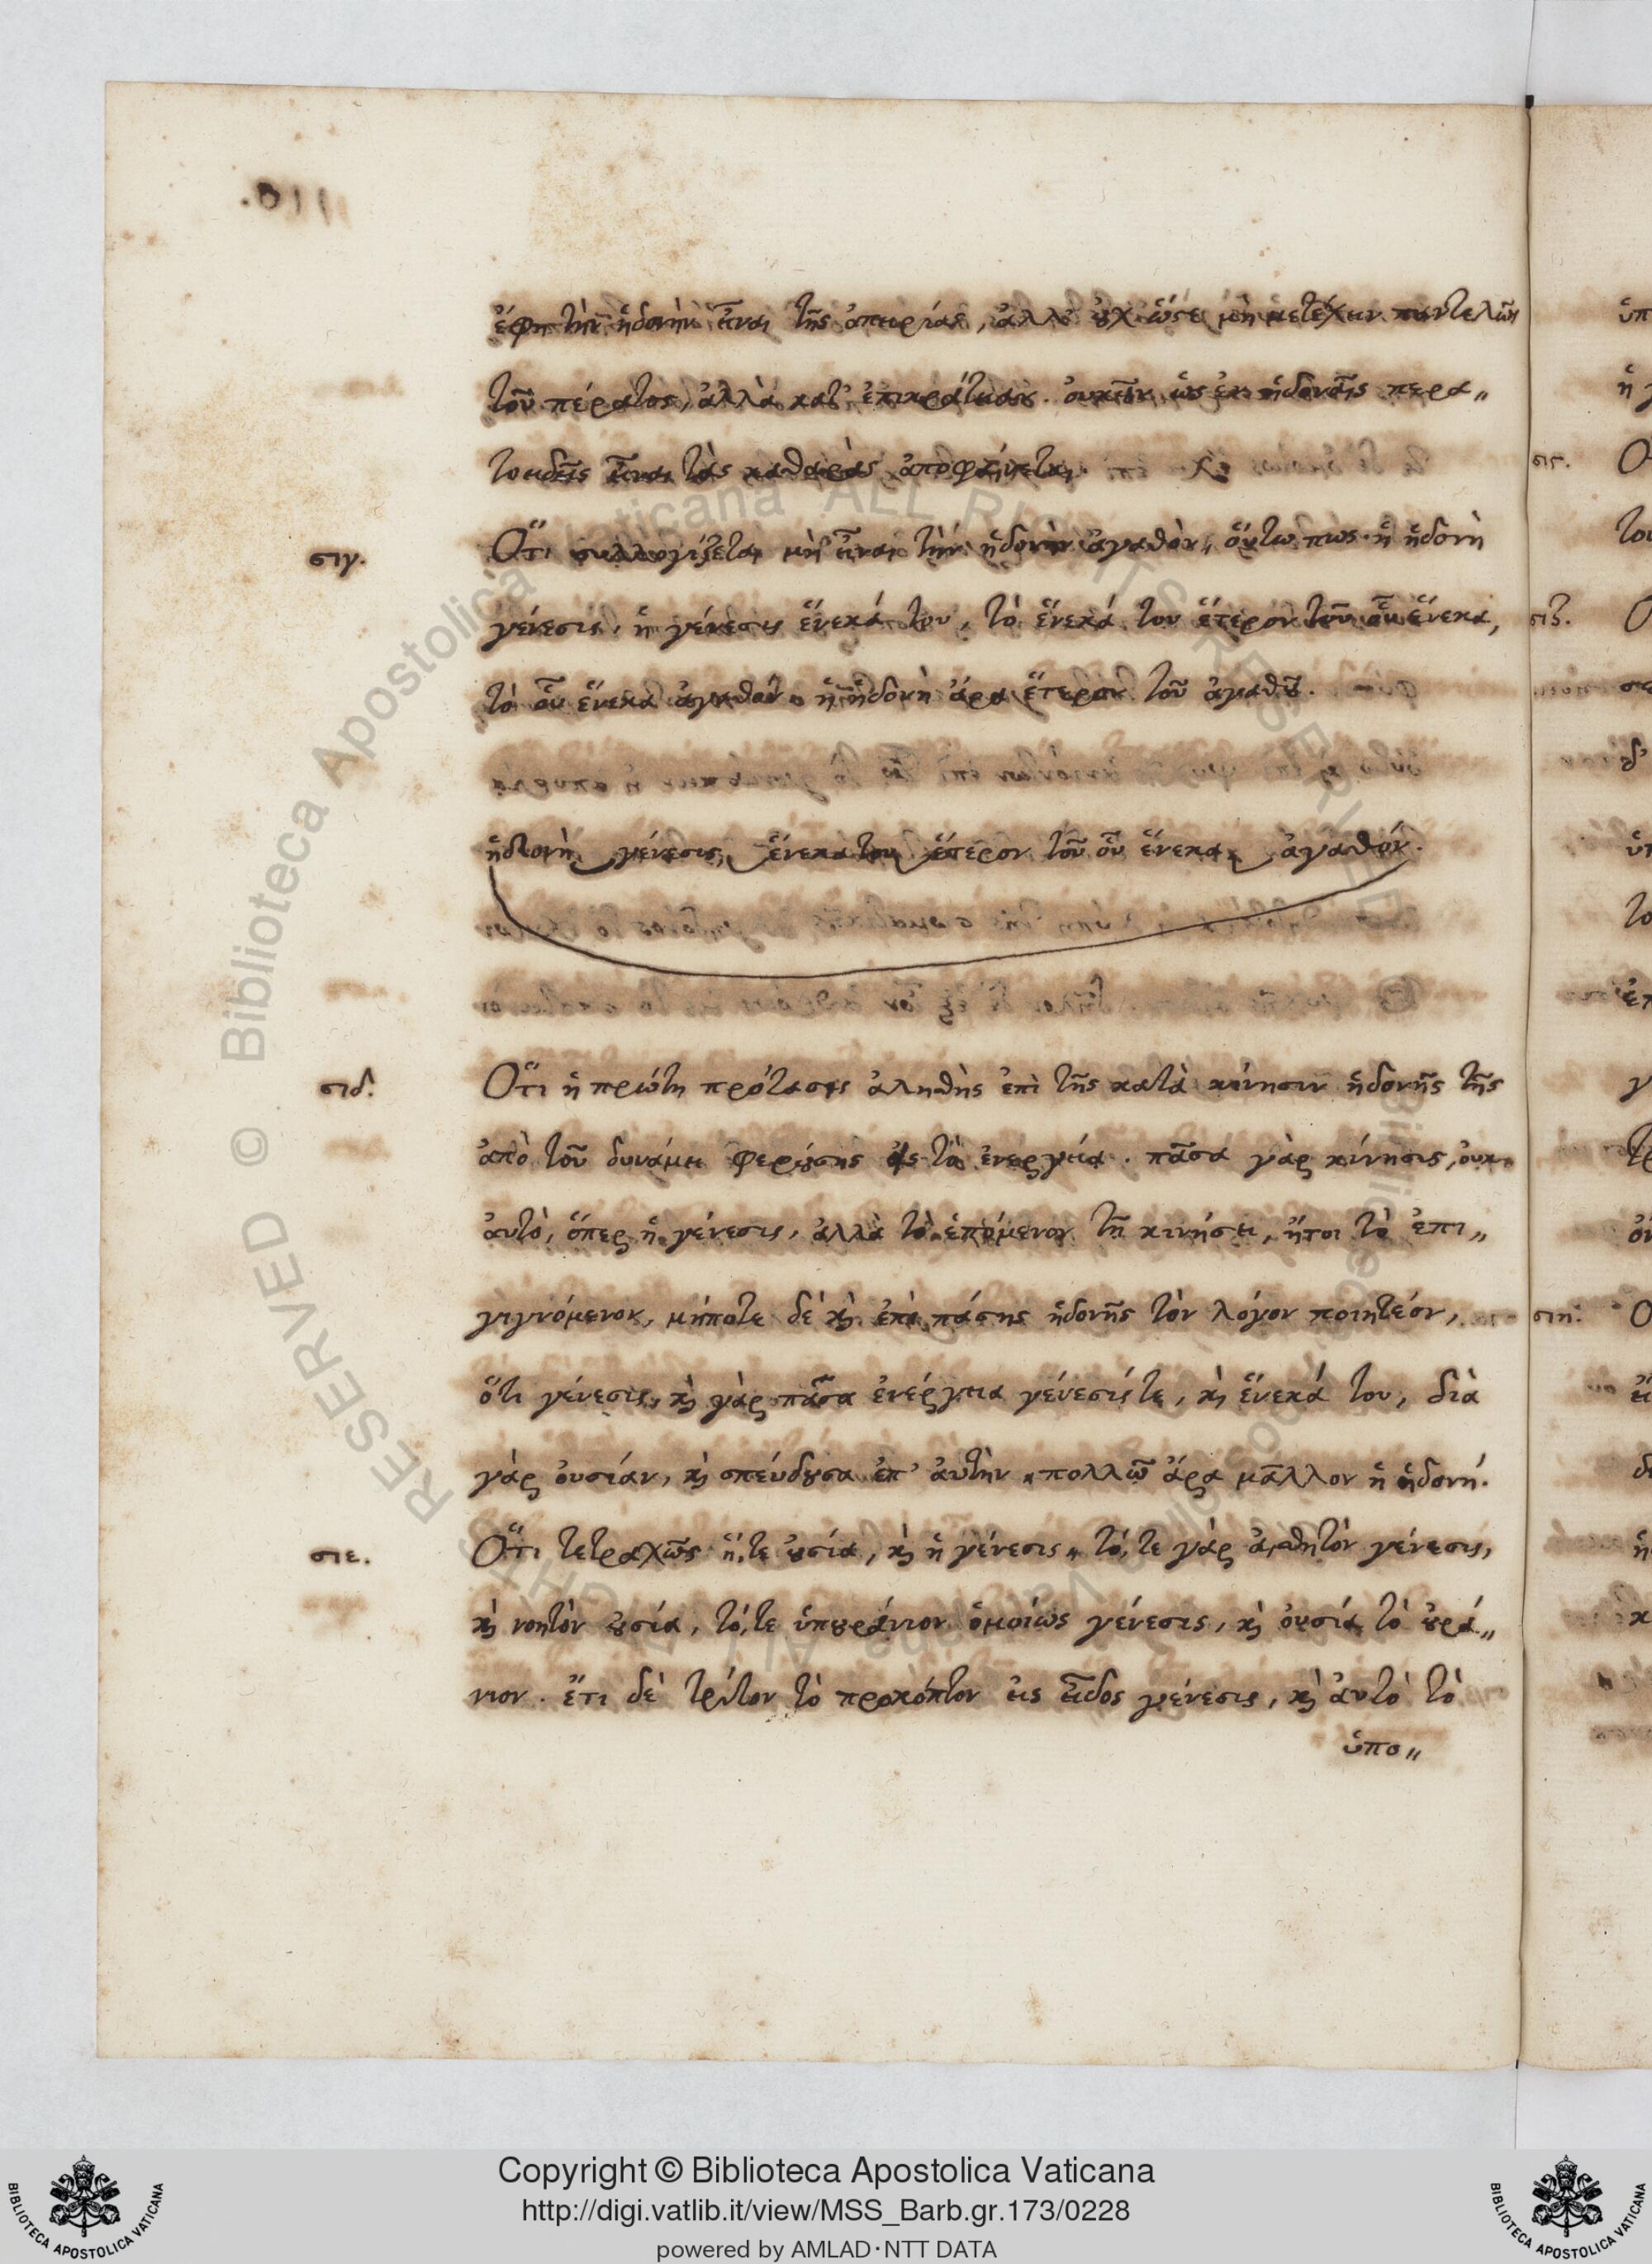 .011
ἔφη τὴν ἡδονὴν εἶναι τῆς ἀπειρίας, ἀλλ' οὐχ ὥστε μὴ μετέχειν παντελῶς
τοῦ πέρατος, ἀλλὰ κατ' ἐπικράτειαν. οὐκοῦν ὡς ἐν ἡδοναῖς περα„
τοειδεῖς εἶναι τὰς καθαρὰς ἀποφαίνεται.
σιγ. Ὅτι συλλογίζεται μὴ εἶναι τὴν ἡδονὴν ἀγαθὸν, οὕτω πως· ἡ ἡδονὴ
γένεσις, ἡ γένεσις ἕνεκά του, τὸ ἕνεκά του ἕτερον τοῦ οὗ ἕνεκα,
τὸ οὗ ἕνεκα ἀγαθόν. ἡ ἡδονὴ ἄρα ἕτερον τοῦ ἀγαθοῦ.
ἡδονὴ γένεσις, ἕνεκα του ἕτερον τοῦ οὗ ἕνεκα, ἀγαθόν.
σιδ. Ὅτι ἡ πρώτη πρότασις ἀληθὴς ἐπὶ τῆς κατὰ κίνησιν ἡδονῆς τῆς
ἀπὸ τοῦ δυνάμει φερούσης εἰς τὸ ἐνεργείᾳ. πᾶσα γὰρ κίνησις, οὐκ
αὐτὸ, ὅπερ ἡ γένεσις, ἀλλὰ τὸ ἑπόμενον τῇ κινήσει, ἤτοι τὸ ἐπι„
γιγνόμενον, μήποτε δὲ καὶ ἐπὶ πάσης ἡδονῆς τὸν λόγον ποιητέον,
ὅτι γένεσις, καὶ γὰρ πᾶσα ἐνέργεια γένεσίς τε, καὶ ἕνεκά του, διὰ
γὰρ οὐσίαν, καὶ σπεύδουσα ἐπ' αὐτήν. πολλῷ ἄρα μᾶλλον ἡ ἡδονή.
σιε. Ὅτι τετραχῶς ἥ, τε οὐσία, καὶ ἡ γένεσις. τό, τε γὰρ αἰσθητὸν γένεσις,
καὶ νοητὸν οὐσία, τό, τε ὑπουράνιον ὁμοίως γένεσις, καὶ οὐσία τὸ οὐρά„
νιον. ἔτι δὲ τρίτον τὸ προκόπτον εἰς εἶδος γένεσις, καὶ αὐτὸ τὸ
ὑπο„
σις.
σιζ.
σιη.
© Biblioteca Apostolica Vaticana ALL RIGHTS RESERVED
Copyright © Biblioteca Apostolica Vaticana
http://digi.vatlib.it/view/MSS_Barb.gr.173/0228
powered by AMLAD·NTT DATA
BIBLIOTECA APOSTOLICA VATICANA
BIBLIOTECA APOSTOLICA VATICANA